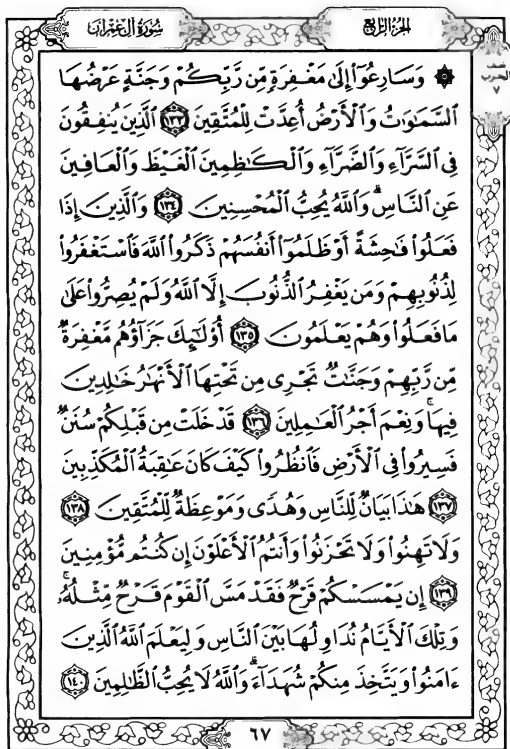 سُورَةُ آلِ عِمْرَان
الجُزْءُ الرَّابِعُ
نصف
الحزب
٧
۞ وَسَارِعُوٓا۟ إِلَىٰ مَغْفِرَةٍ مِّن رَّبِّكُمْ وَجَنَّةٍ عَرْضُهَا
ٱلسَّمَـٰوَٰتُ وَٱلْأَرْضُ أُعِدَّتْ لِلْمُتَّقِينَ ١٣٣ ٱلَّذِينَ يُنفِقُونَ
فِى ٱلسَّرَّآءِ وَٱلضَّرَّآءِ وَٱلْكَـٰظِمِينَ ٱلْغَيْظَ وَٱلْعَافِينَ
عَنِ ٱلنَّاسِ ۗ وَٱللَّهُ يُحِبُّ ٱلْمُحْسِنِينَ ١٣٤ وَٱلَّذِينَ إِذَا
فَعَلُوا۟ فَـٰحِشَةً أَوْ ظَلَمُوٓا۟ أَنفُسَهُمْ ذَكَرُوا۟ ٱللَّهَ فَٱسْتَغْفَرُوا۟
لِذُنُوبِهِمْ وَمَن يَغْفِرُ ٱلذُّنُوبَ إِلَّا ٱللَّهُ وَلَمْ يُصِرُّوا۟ عَلَىٰ
مَا فَعَلُوا۟ وَهُمْ يَعْلَمُونَ ١٣٥ أُو۟لَـٰٓئِكَ جَزَآؤُهُم مَّغْفِرَةٌ
مِّن رَّبِّهِمْ وَجَنَّـٰتٌ تَجْرِى مِن تَحْتِهَا ٱلْأَنْهَـٰرُ خَـٰلِدِينَ
فِيهَا ۚ وَنِعْمَ أَجْرُ ٱلْعَـٰمِلِينَ ١٣٦ قَدْ خَلَتْ مِن قَبْلِكُمْ سُنَنٌ
فَسِيرُوا۟ فِى ٱلْأَرْضِ فَٱنظُرُوا۟ كَيْفَ كَانَ عَـٰقِبَةُ ٱلْمُكَذِّبِينَ
١٣٧ هَـٰذَا بَيَانٌ لِّلنَّاسِ وَهُدًى وَمَوْعِظَةٌ لِّلْمُتَّقِينَ ١٣٨
وَلَا تَهِنُوا۟ وَلَا تَحْزَنُوا۟ وَأَنتُمُ ٱلْأَعْلَوْنَ إِن كُنتُم مُّؤْمِنِينَ
١٣٩ إِن يَمْسَسْكُمْ قَرْحٌ فَقَدْ مَسَّ ٱلْقَوْمَ قَرْحٌ مِّثْلُهُۥ ۚ
وَتِلْكَ ٱلْأَيَّامُ نُدَاوِلُهَا بَيْنَ ٱلنَّاسِ وَلِيَعْلَمَ ٱللَّهُ ٱلَّذِينَ
ءَامَنُوا۟ وَيَتَّخِذَ مِنكُمْ شُهَدَآءَ ۗ وَٱللَّهُ لَا يُحِبُّ ٱلظَّـٰلِمِينَ ١٤٠
٦٧